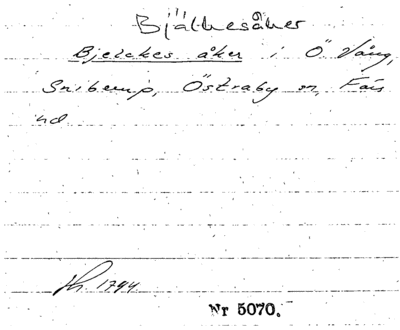 Bjälkesåker
Bjelckes åker i Ö Vång,
Sniberup, Östraby sn, Färs
hd
Kh. 1794
Nr 5070.